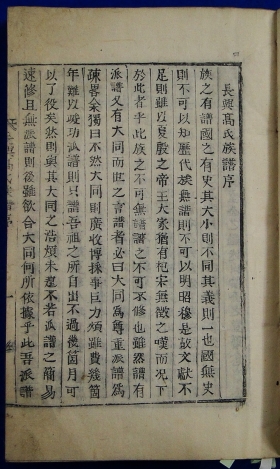 長興高氏族譜序
族之有譜國之有史其大小不同其義則一也國無史
則不可以知歷代族無譜則不可以明昭穆是故文獻不
足則雖以夏殷之帝王大家猶有杞宋無徵之嘆而況下
於此者乎此族之不可無譜譜之不可不修也雖然譜有
派譜又有大同而世之言譜者必曰大同為尊重派譜為
疎畧余獨曰不然大同則廣收博採事巨力煩雖費幾箇
年難以竣功派譜則只譜吾祖之所自出不過後箇月可
以了役矣然則與其大同之浩煩未羣不若派譜之簡易
速修且無派譜則後雖欲合大同何所依據乎此吾派譜